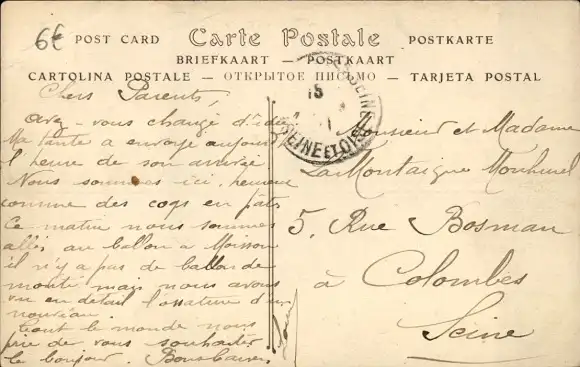 6€
POST CARD Carte Postale POSTKARTE
BRIEFKAART — POSTKAART
CARTOLINA POSTALE — ОТКРЫТОЕ ПИСЬМО — TARJETA POSTAL
Chers Parents,
avez-vous changé d'idée
Ma tante a envoyé aujourd'
l'heure de son arrivée
Nous sommes ici, heureux
comme des coqs en pâte
Ce matin nous sommes
allés au ballon a Moisson
il n'y a pas de ballon de
monté mais nous avons
vu en détail l'ossature d'un
nouveau.
tout le monde nous
prie de vous souhaiter
le bonjour. Bons baisers
SEINE ET OISE
18
Monsieur et Madame
LaMontaigne
5, Rue Bosman
à Colombes
Seine